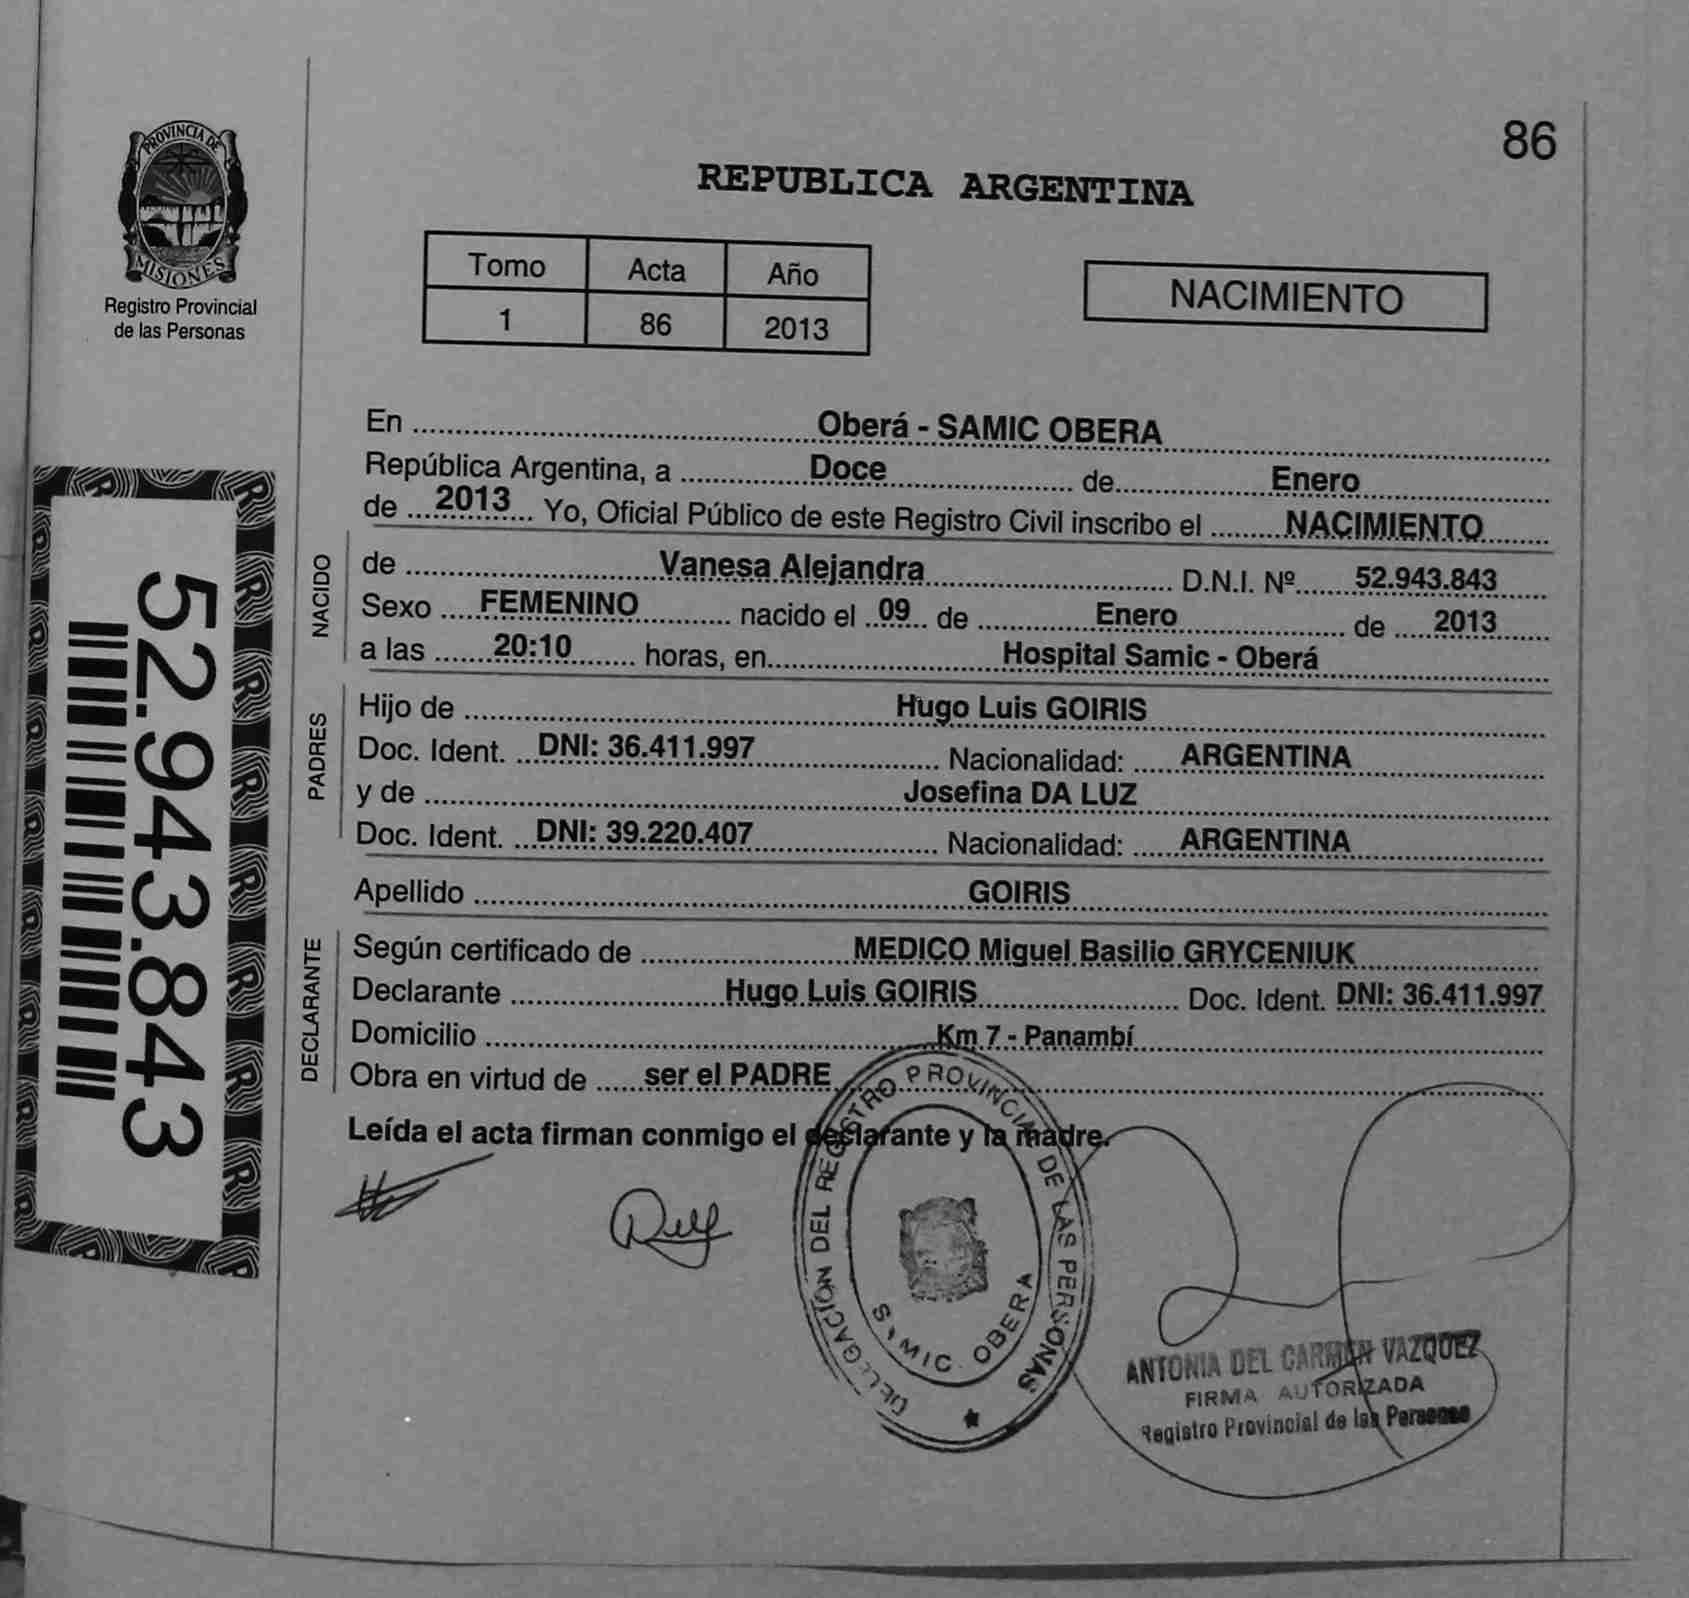 86
PROVINCIA DE
MISIONES
Registro Provincial
de las Personas
REPUBLICA ARGENTINA
Tomo Acta Año
1 86 2013
NACIMIENTO
En Oberá - SAMIC OBERA
República Argentina, a Doce de Enero
de 2013 Yo, Oficial Público de este Registro Civil inscribo el NACIMIENTO
NACIDO
de Vanesa Alejandra D.N.I. Nº 52.943.843
Sexo FEMENINO nacido el 09 de Enero de 2013
a las 20:10 horas, en Hospital Samic - Oberá
PADRES
Hijo de Hugo Luis GOIRIS
Doc. Ident. DNI: 36.411.997 Nacionalidad: ARGENTINA
y de Josefina DA LUZ
Doc. Ident. DNI: 39.220.407 Nacionalidad: ARGENTINA
Apellido GOIRIS
DECLARANTE
Según certificado de MEDICO Miguel Basilio GRYCENIUK
Declarante Hugo Luis GOIRIS Doc. Ident. DNI: 36.411.997
Domicilio Km 7 - Panambí
Obra en virtud de ser el PADRE
Leída el acta firman conmigo el declarante y la madre.
52.943.843
DELEGACION DEL REGISTRO PROVINCIAL DE LAS PERSONAS
SAMIC. OBERA
ANTONIA DEL CARMEN VAZQUEZ
FIRMA AUTORIZADA
Registro Provincial de las Personas